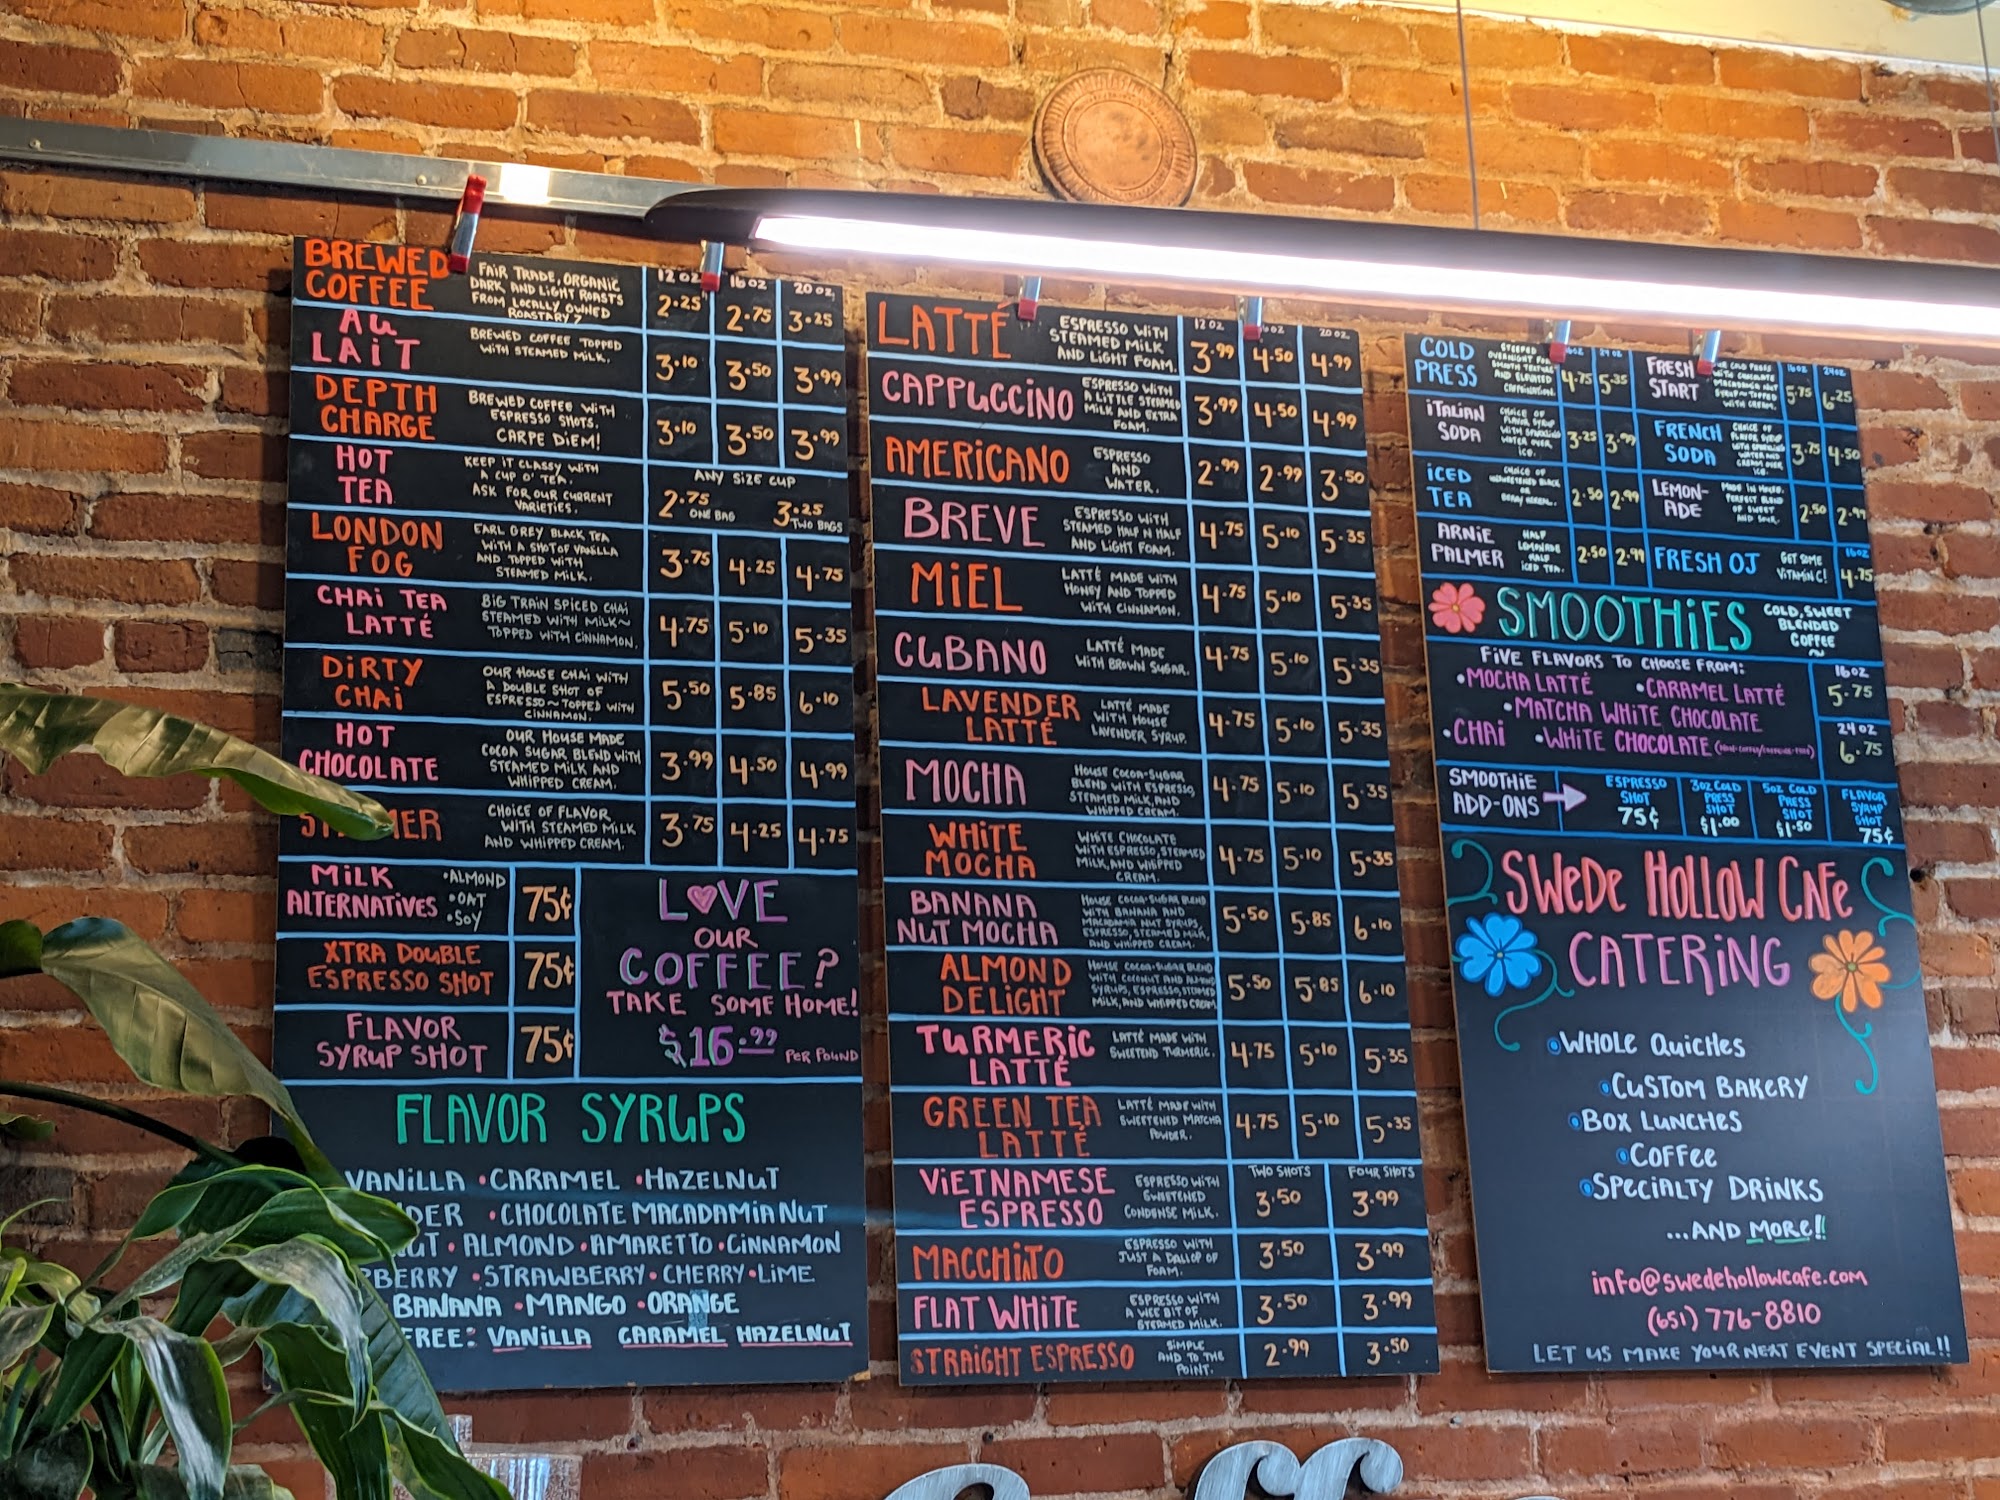 BREWED COFFEE
FAIR TRADE, ORGANIC
DARK, AND LIGHT ROASTS
FROM LOCALLY OWNED
ROASTARY 7
12 OZ 16 OZ 20 OZ
2.25 2.75 3.25
AU LAIT
BREWED COFFEE TOPPED
WITH STEAMED MILK.
3.10 3.50 3.99
DEPTH CHARGE
BREWED COFFEE WITH
ESPRESSO SHOTS.
CARPE DIEM!
3.10 3.50 3.99
HOT TEA
KEEP IT CLASSY WITH
A CUP O' TEA.
ASK FOR OUR CURRENT
VARIETIES.
ANY SIZE CUP
2.75 ONE BAG 3.25 TWO BAGS
LONDON FOG
EARL GREY BLACK TEA
WITH A SHOT OF VANILLA
AND TOPPED WITH
STEAMED MILK.
3.75 4.25 4.75
CHAI TEA LATTÉ
BIG TRAIN SPICED CHAI
STEAMED WITH MILK~
TOPPED WITH CINNAMON.
4.75 5.10 5.35
DIRTY CHAI
OUR HOUSE CHAI WITH
A DOUBLE SHOT OF
ESPRESSO~TOPPED WITH
CINNAMON.
5.50 5.85 6.10
HOT CHOCOLATE
OUR HOUSE MADE
COCOA SUGAR BLEND WITH
STEAMED MILK AND
WHIPPED CREAM.
3.99 4.50 4.99
CHOICE OF FLAVOR
WITH STEAMED MILK
AND WHIPPED CREAM.
3.75 4.25 4.75
MILK ALTERNATIVES
•ALMOND
•OAT
•SOY
75¢
XTRA DOUBLE
ESPRESSO SHOT
75¢
FLAVOR
SYRUP SHOT
75¢
LOVE
OUR
COFFEE?
TAKE SOME HOME!
$16.99 PER POUND
FLAVOR SYRUPS
VANILLA •CARAMEL •HAZELNUT
•CHOCOLATE MACADAMIA NUT
•ALMOND•AMARETTO•CINNAMON
•STRAWBERRY•CHERRY•LIME
BANANA •MANGO •ORANGE
FREE: VANILLA CARAMEL HAZELNUT
LATTÉ
ESPRESSO WITH
STEAMED MILK
AND LIGHT FOAM.
12 OZ 16 OZ 20 OZ
3.99 4.50 4.99
CAPPUCCINO
ESPRESSO WITH
A LITTLE STEAMED
MILK AND EXTRA
FOAM.
3.99 4.50 4.99
AMERICANO
ESPRESSO
AND
WATER.
2.99 2.99 3.50
BREVE
ESPRESSO WITH
STEAMED HALF N HALF
AND LIGHT FOAM.
4.75 5.10 5.35
MIEL
LATTÉ MADE WITH
HONEY AND TOPPED
WITH CINNAMON.
4.75 5.10 5.35
CUBANO
LATTÉ MADE
WITH BROWN SUGAR.
4.75 5.10 5.35
LAVENDER LATTÉ
LATTÉ MADE
WITH HOUSE
LAVENDER SYRUP.
4.75 5.10 5.35
MOCHA
HOUSE COCOA-SUGAR
BLEND WITH ESPRESSO,
STEAMED MILK, AND
WHIPPED CREAM.
4.75 5.10 5.35
WHITE MOCHA
WHITE CHOCOLATE
WITH ESPRESSO, STEAMED
MILK, AND WHIPPED
CREAM.
4.75 5.10 5.35
BANANA NUT MOCHA
HOUSE COCOA-SUGAR BLEND
WITH BANANA AND
MACADAMIA NUT SYRUPS,
ESPRESSO, STEAMED MILK,
AND WHIPPED CREAM.
5.50 5.85 6.10
ALMOND DELIGHT
HOUSE COCOA-SUGAR BLEND
WITH COCONUT AND ALMOND
SYRUPS, ESPRESSO, STEAMED
MILK, AND WHIPPED CREAM
5.50 5.85 6.10
TURMERIC LATTÉ
LATTÉ MADE WITH
SWEETEND TURMERIC.
4.75 5.10 5.35
GREEN TEA LATTÉ
LATTÉ MADE WITH
SWEETENED MATCHA
POWDER.
4.75 5.10 5.35
VIETNAMESE ESPRESSO
ESPRESSO WITH
SWEETENED
CONDENSE MILK.
TWO SHOTS FOUR SHOTS
3.50 3.99
MACCHIATO
ESPRESSO WITH
JUST A DALLOP OF
FOAM.
3.50 3.99
FLAT WHITE
ESPRESSO WITH
A WEE BIT OF
STEAMED MILK.
3.50 3.99
STRAIGHT ESPRESSO
SIMPLE
AND TO THE
POINT.
2.99 3.50
COLD PRESS
STEEPED
OVERNIGHT FOR
SMOOTH TEXTURE
AND ELEVATED
CAFFEINATION.
24 OZ
4.75 5.35
FRESH START
COLD PRESS
WITH CHOCOLATE
MACADAMIA NUT
SYRUP~TOPPED
WITH CREAM.
16 OZ 24 OZ
5.75 6.25
ITALIAN SODA
CHOICE OF
FLAVOR SYRUP
WITH SPARKLING
WATER OVER
ICE.
3.25 3.99
FRENCH SODA
CHOICE OF
FLAVOR SYRUP
WITH SPARKLING
WATER AND
CREAM OVER
ICE.
3.75 4.50
ICED TEA
CHOICE OF
UNSWEETENED BLACK
OR
BERRY HERBAL.
2.50 2.99
LEMON-ADE
MADE IN HOUSE.
PERFECT BLEND
OF SWEET
AND SOUR.
2.50 2.99
ARNIE PALMER
HALF
LEMONADE
HALF
ICED TEA.
2.50 2.99
FRESH OJ
GET SOME
VITAMIN C!
16 OZ
4.75
SMOOTHIES
COLD, SWEET
BLENDED
COFFEE
~
FIVE FLAVORS TO CHOOSE FROM:
•MOCHA LATTÉ •CARAMEL LATTÉ
•MATCHA WHITE CHOCOLATE
•CHAI •WHITE CHOCOLATE (NON-COFFEE/CAFFEINE-FREE)
16 OZ
5.75
24 OZ
6.75
SMOOTHIE
ADD-ONS
ESPRESSO
SHOT
75¢
3oz COLD
PRESS
SHOT
$1.00
5oz COLD
PRESS
SHOT
$1.50
FLAVOR
SYRUP
SHOT
75¢
SWEDE HOLLOW CAFE
CATERING
WHOLE QUICHES
CUSTOM BAKERY
BOX LUNCHES
COFFEE
SPECIALTY DRINKS
...AND MORE!!
info@swedehollowcafe.com
(651) 776-8810
LET US MAKE YOUR NEXT EVENT SPECIAL!!